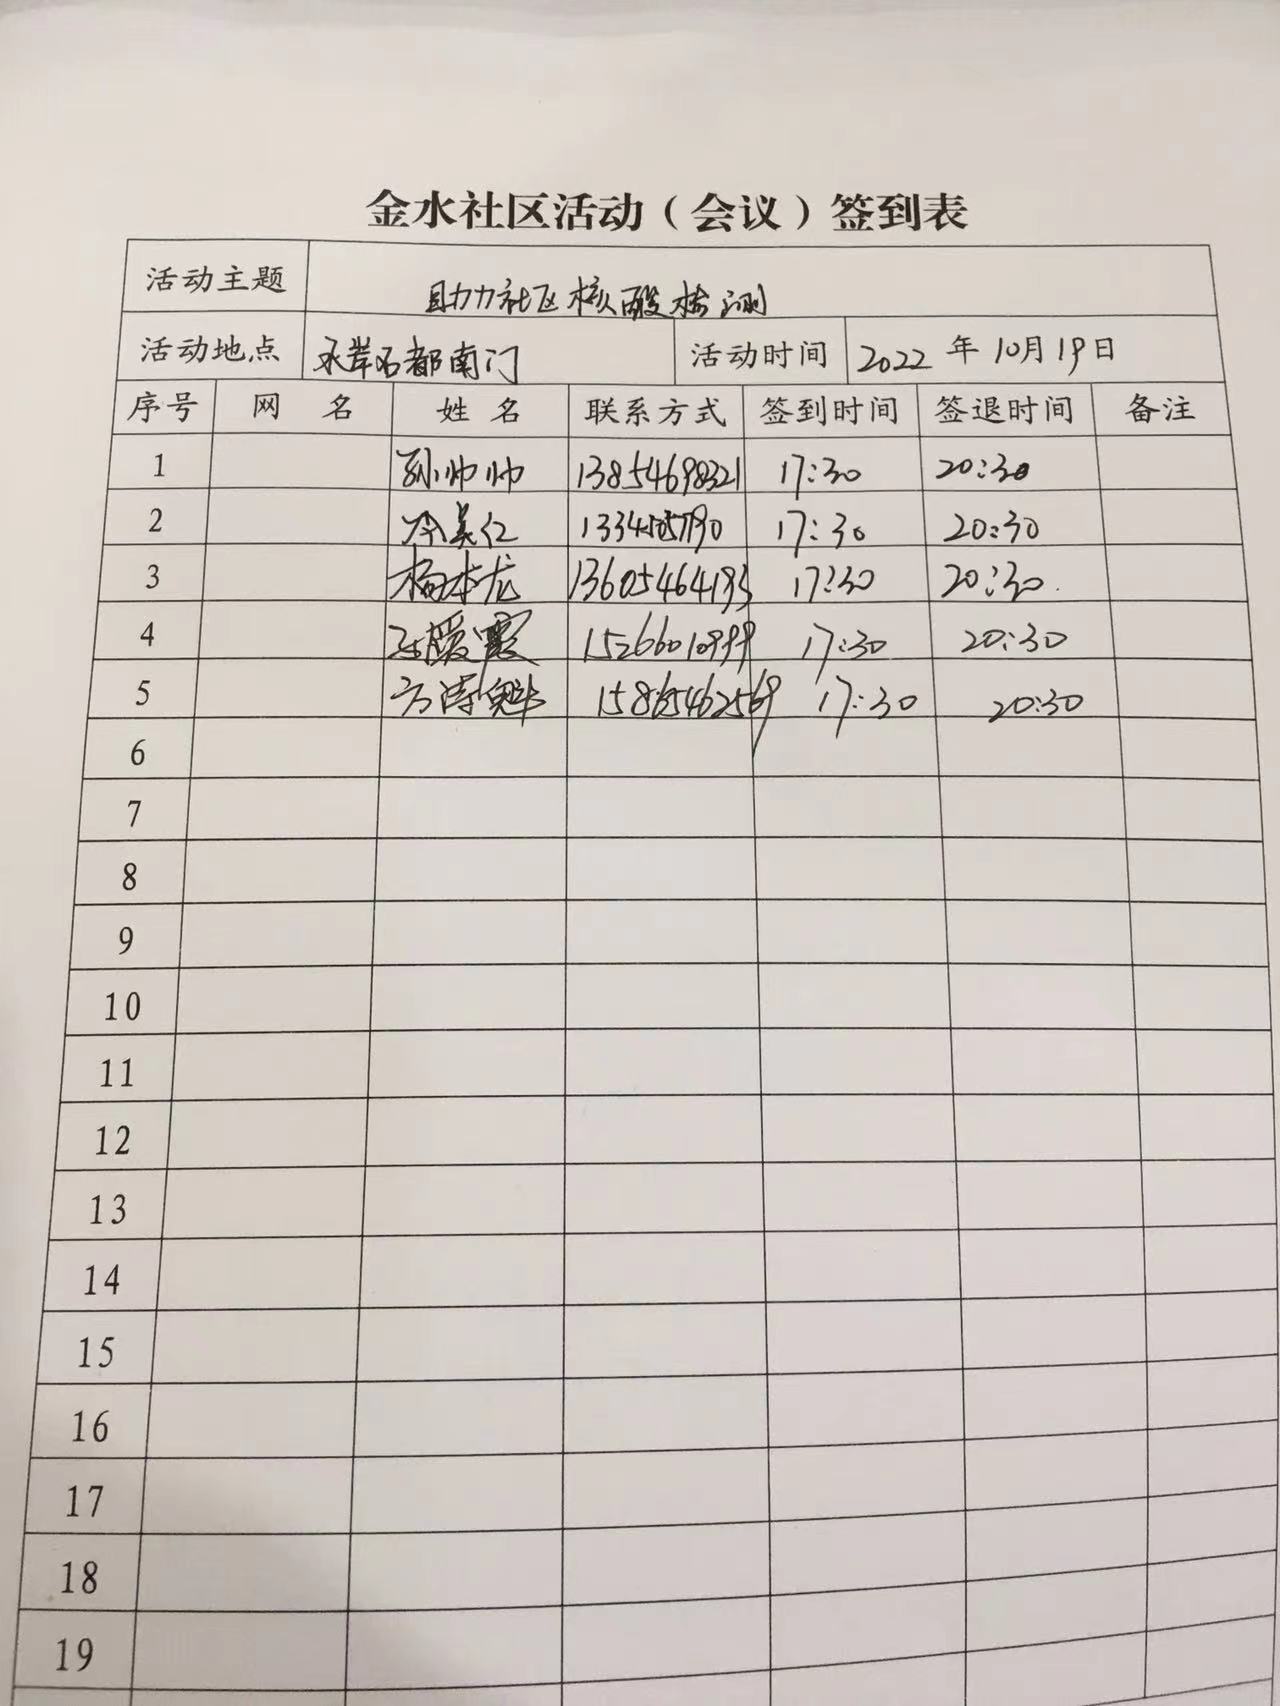 金水社区活动（会议）签到表
活动主题 助力社区核酸检测
活动地点 水岸名都南门 活动时间 2022 年 10月19日
序号 网 名 姓 名 联系方式 签到时间 签退时间 备注
1 孙帅帅 13854698321 17:30 20:30
2 17:30 20:30
3 杨本龙 13605464193 17:30 20:30
4 15266010999 17:30 20:30
5 15865462569 17:30 20:30
6
7
8
9
10
11
12
13
14
15
16
17
18
19